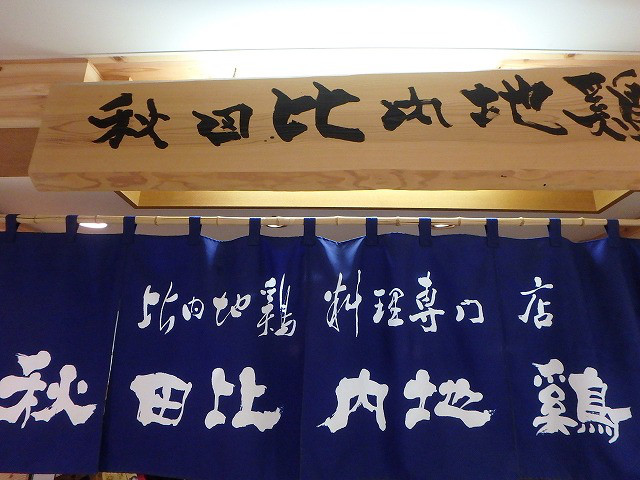 秋田比内地鶏
比内地鶏 料理専門店
秋田比内地鶏